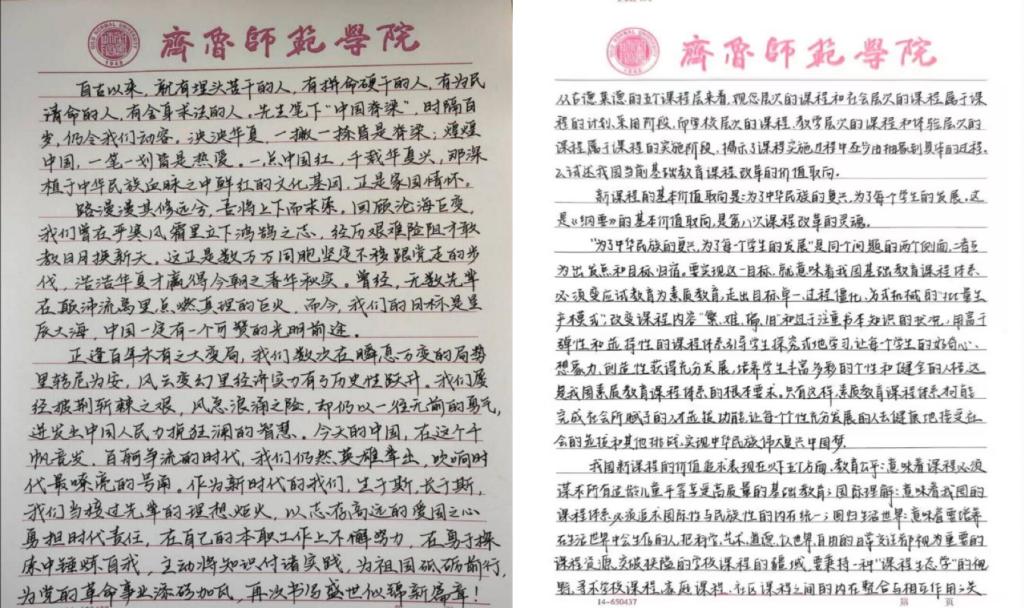 齐鲁师范学院
自古以来，就有埋头苦干的人，有拼命硬干的人，有为民
请命的人，有舍身求法的人。先生笔下“中国脊梁”，时隔百
岁，仍令我们动容。泱泱华夏，一撇一捺皆是脊梁；煌煌
中国，一笔一划皆是热爱。一点中国红，千载华夏兴，那深
植于中华民族血脉之中鲜红的文化基因，正是家国情怀。
路漫漫其修远兮，吾将上下而求索。回顾沧海巨变，
我们曾在严寒风霜里立下鸿鹄之志，经历艰难险阻才敢
教日月换新天。这正是数万万同胞坚定不移跟党走的步
伐，浩浩华夏才赢得今朝之春华秋实。曾经，无数先辈
在颠沛流离里点燃真理的巨火，而今，我们的目标是星
辰大海，中国一定有一个可赞的光明前途。
正逢百年未有之大变局，我们数次在瞬息万变的局势
里转危为安，风云变幻里经济实力有了历史性跃升。我们屡
经披荆斩棘之艰，风急浪涌之险，却仍以一往无前的勇气，
迸发出中国人民力挽狂澜的智慧。今天的中国，在这个千
帆竞发，百舸争流的时代，我们仍然英雄辈出，吹响时
代最嘹亮的号角。作为新时代的我们，生于斯，长于斯，
我们当接过先辈的理想炬火，以志存高远的爱国之心
勇担时代责任，在自己的本职工作上不懈努力，在勇于探
求中锤炼自我，主动将知识付诸实践，为祖国砥砺前行，
为党的革命事业添砖加瓦，再次书写盛世似锦新篇章！
齐鲁师范学院
从古德莱德的五个课程层来看，观念层次的课程和社会层次的课程属于课
程的计划、采用阶段，而学校层次的课程、教学层次的课程和体验层次的
课程属于课程的实施阶段，揭示了课程实施过程中逐步由抽象到具体的过程。
么试述我国当前基础教育课程改革的价值取向。
新课程的基本价值取向是：为了中华民族的复兴，为了每个学生的发展。这
是《纲要》的基本价值取向，是第八次课程改革的灵魂。
“为了中华民族的复兴，为了每个学生的发展”是同个问题的两个侧面，二者互
为出发点和目标归宿。要实现这一目标，就意味着我国基础教育课程体系
必须变应试教育为素质教育，走出目标单一、过程僵化、方式机械的“批量生
产模式”，改变课程内容“繁、难、偏、旧”和过于注重书本知识的状况，用富于
弹性和选择性的课程体系引导学生探究式地学习，让每个学生的好奇心、
想象力、创造性获得充分发展，培养学生丰富多彩的个性和健全的人格，这
是我国素质教育课程体系的根本要求。只有这样，素质教育课程体系才能
完成社会所赋予的人才选拔功能，让每个个性充分发展的人去健康地接受社
会的选拔和其他挑战，实现中华民族伟大复兴中国梦
我国新课程的价值追求表现在以下五个方面：教育公平：意味着课程必须
谋求所有适龄儿童平等享受高质量的基础教育；国际理解：意味着我国的
课程体系必须追求国际性与民族性的内在统一；回归生活世界：意味着要培养
在生活世界中会生存的人，把科学、艺术、道德、以世界、自由的日常交往都视为重要的
课程资源，突破狭隘的学校课程的疆域，要秉持一种“课程生态学”的视
野，寻求学校课程、家庭课程、社区课程之间的内在整合与相互作用；关
14-650437
第 页